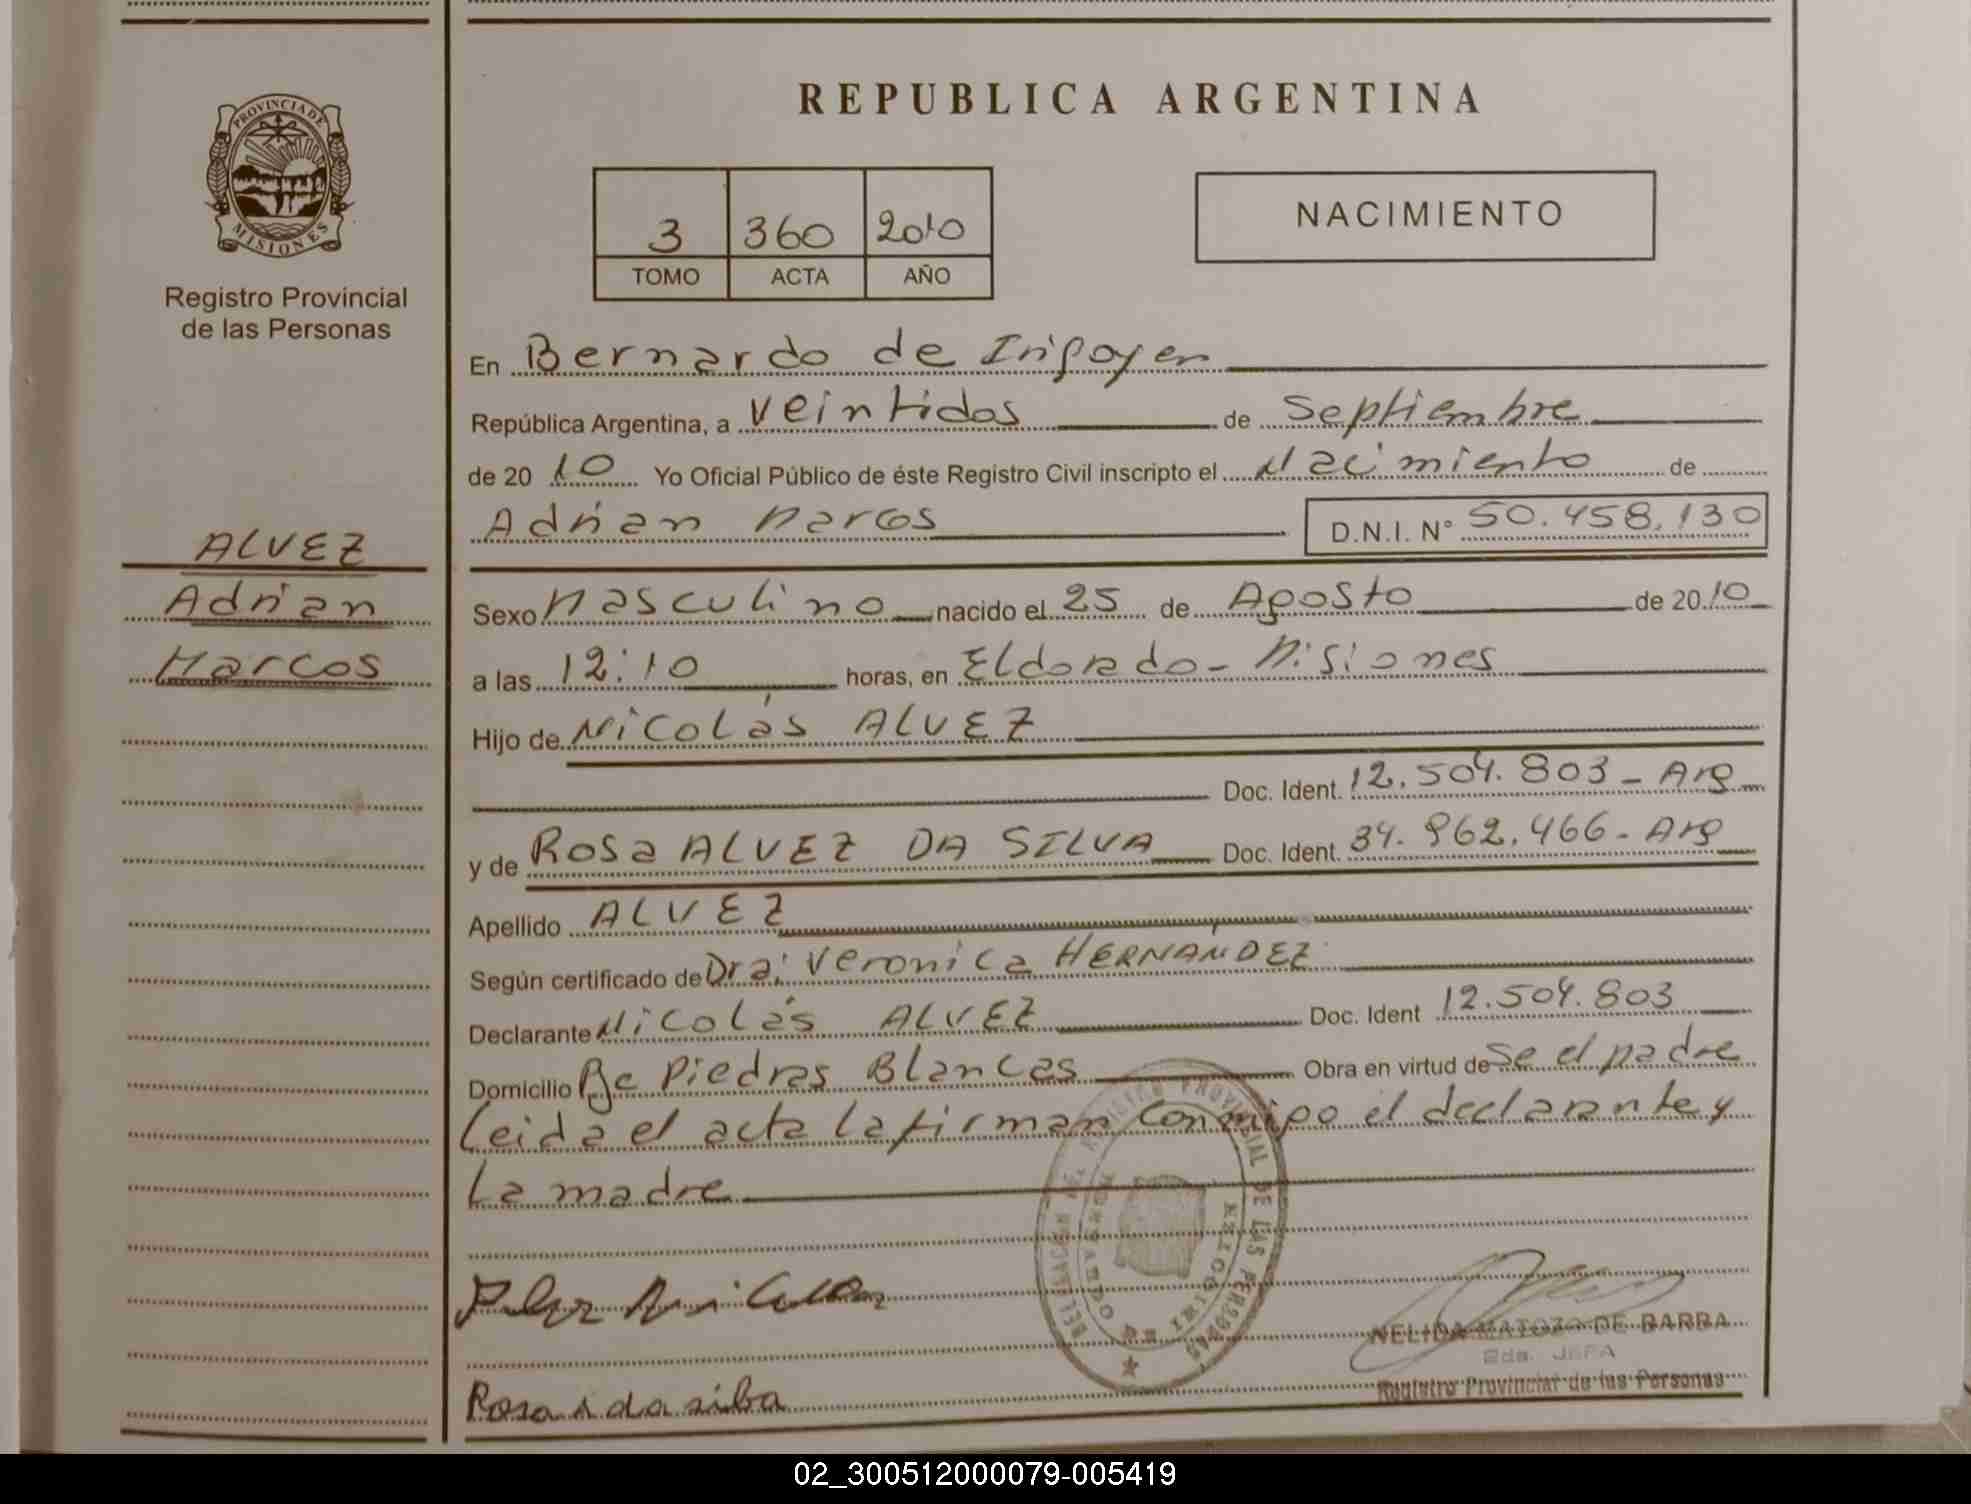 REPUBLICA ARGENTINA
PROVINCIA DE
MISIONES
Registro Provincial
de las Personas
3 360 2010
TOMO ACTA AÑO
NACIMIENTO
En Bernardo de Irigoyen
República Argentina, a veintidos de Septiembre
de 20 10 Yo Oficial Público de éste Registro Civil inscripto el Nacimiento de
Adrian Marcos D.N.I. N° 50.458.130
ALVEZ
Adrian
Marcos
Sexo Masculino nacido el 25 de Agosto de 20 10
a las 12:10 horas, en Eldorado - Misiones
Hijo de Nicolás ALVEZ
Doc. Ident. 12.504.803 - Arg
y de Rosa ALVEZ DA SILVA Doc. Ident. 34.962.466 - Arg
Apellido ALVEZ
Según certificado de Dra: Veronica HERNÁNDEZ
Declarante Nicolás ALVEZ Doc. Ident 12.504.803
Domicilio Bº Piedras Blancas Obra en virtud de se el padre
Leida el acta la firman conmigo el declarante y
la madre
DELEGACION DEL REGISTRO PROVINCIAL DE LAS PERSONAS
BERNARDO DE IRIGOYEN
MISIONES
NELIDA MATOZO DE BARBA
2da. JEFA
Registro Provincial de las Personas
Rosa da silba
02_300512000079-005419